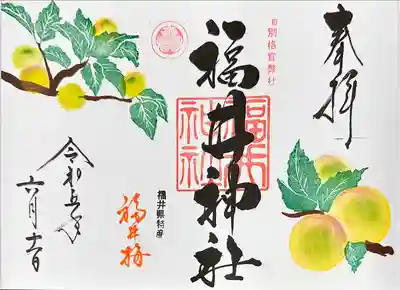 奉拝
旧別格官幣社
福井神社
福井神社
福井県特産
福井梅
令和五年
六月十一日